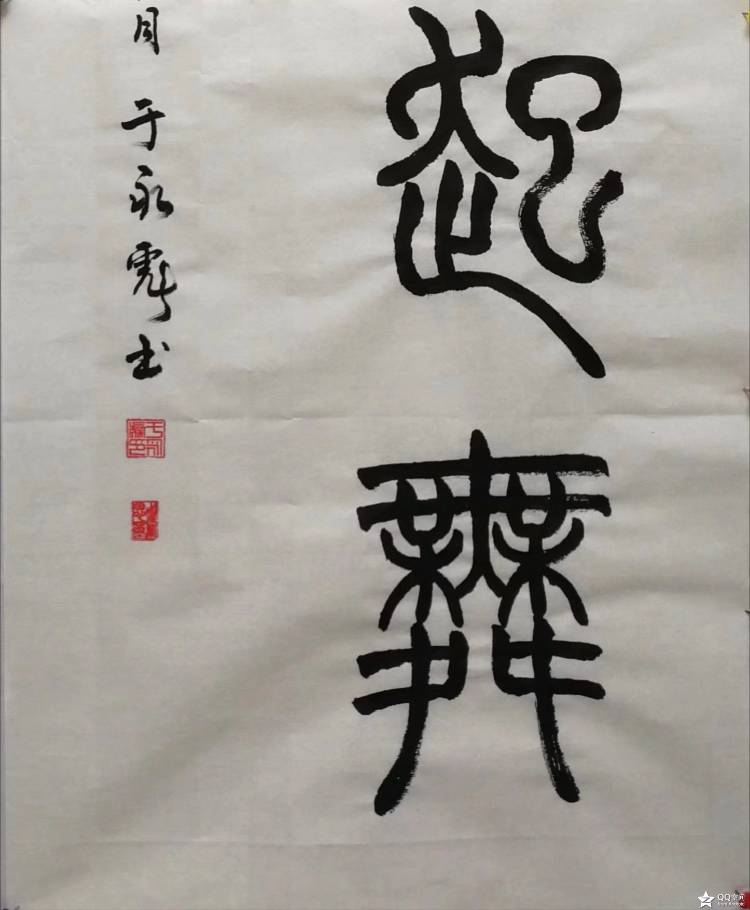 起舞
月于永彪书
QQ空间